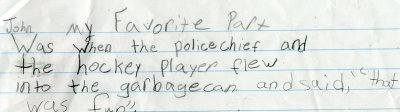 John my Favorite Part
Was when the police chief and
the hockey player flew
into the garbage can and said, "that
was fun".